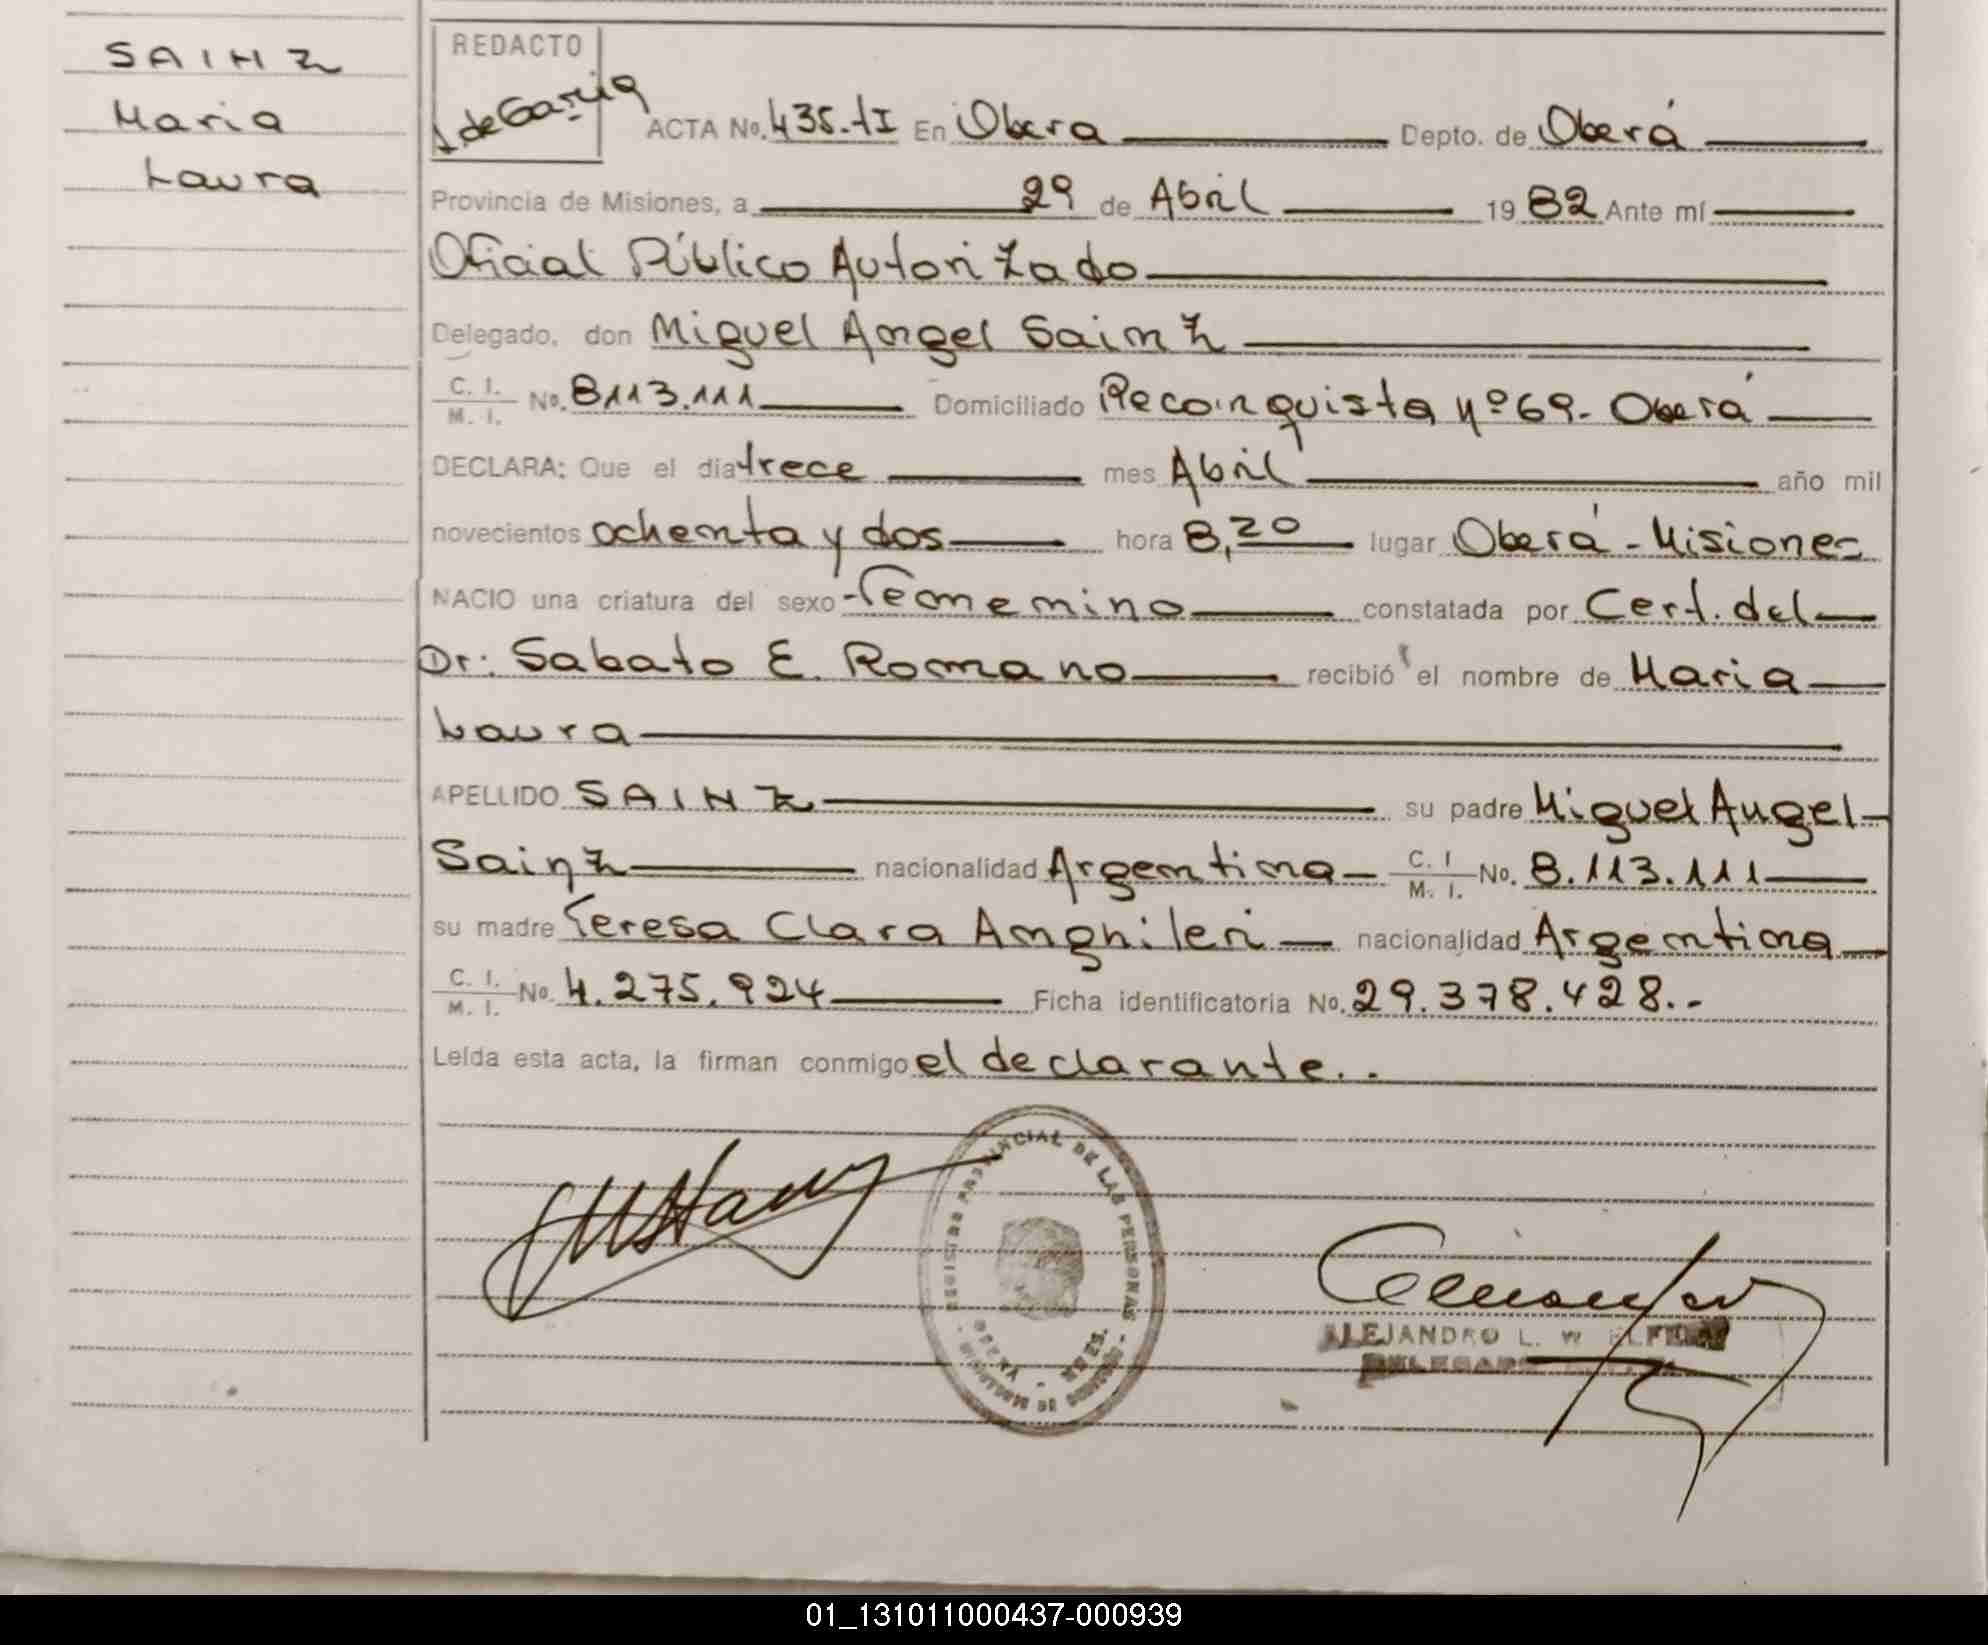 SAINZ
Maria
Laura
REDACTO
de Garcia
ACTA No. 435.tI En Obera Depto. de Oberá
Provincia de Misiones, a 29 de Abril 19 82 Ante mí
Oficial Público Autorizado
Delegado, don Miguel Angel Sainz
C. I. M. I. No. 8113.111 Domiciliado Reconquista nº 69- Oberá
DECLARA: Que el día trece mes Abril año mil
novecientos ochenta y dos hora 8,20 lugar Oberá - Misiones
NACIO una criatura del sexo Femenino constatada por Cert. del
Dr: Sabato E. Romano recibió el nombre de Maria
Laura
APELLIDO SAINZ su padre Miguel Angel
Sainz nacionalidad Argentina C. I M. I. No. 8.113.111
su madre Teresa Clara Anghileri nacionalidad Argentina
C. I. M. I. No. 4.275.924 Ficha identificatoria No. 29.378.428.-
Leída esta acta, la firman conmigo el declarante..
REGISTRO PROVINCIAL DE LAS PERSONAS
ALEJANDRO L. W
DELEGADO
01_131011000437-000939